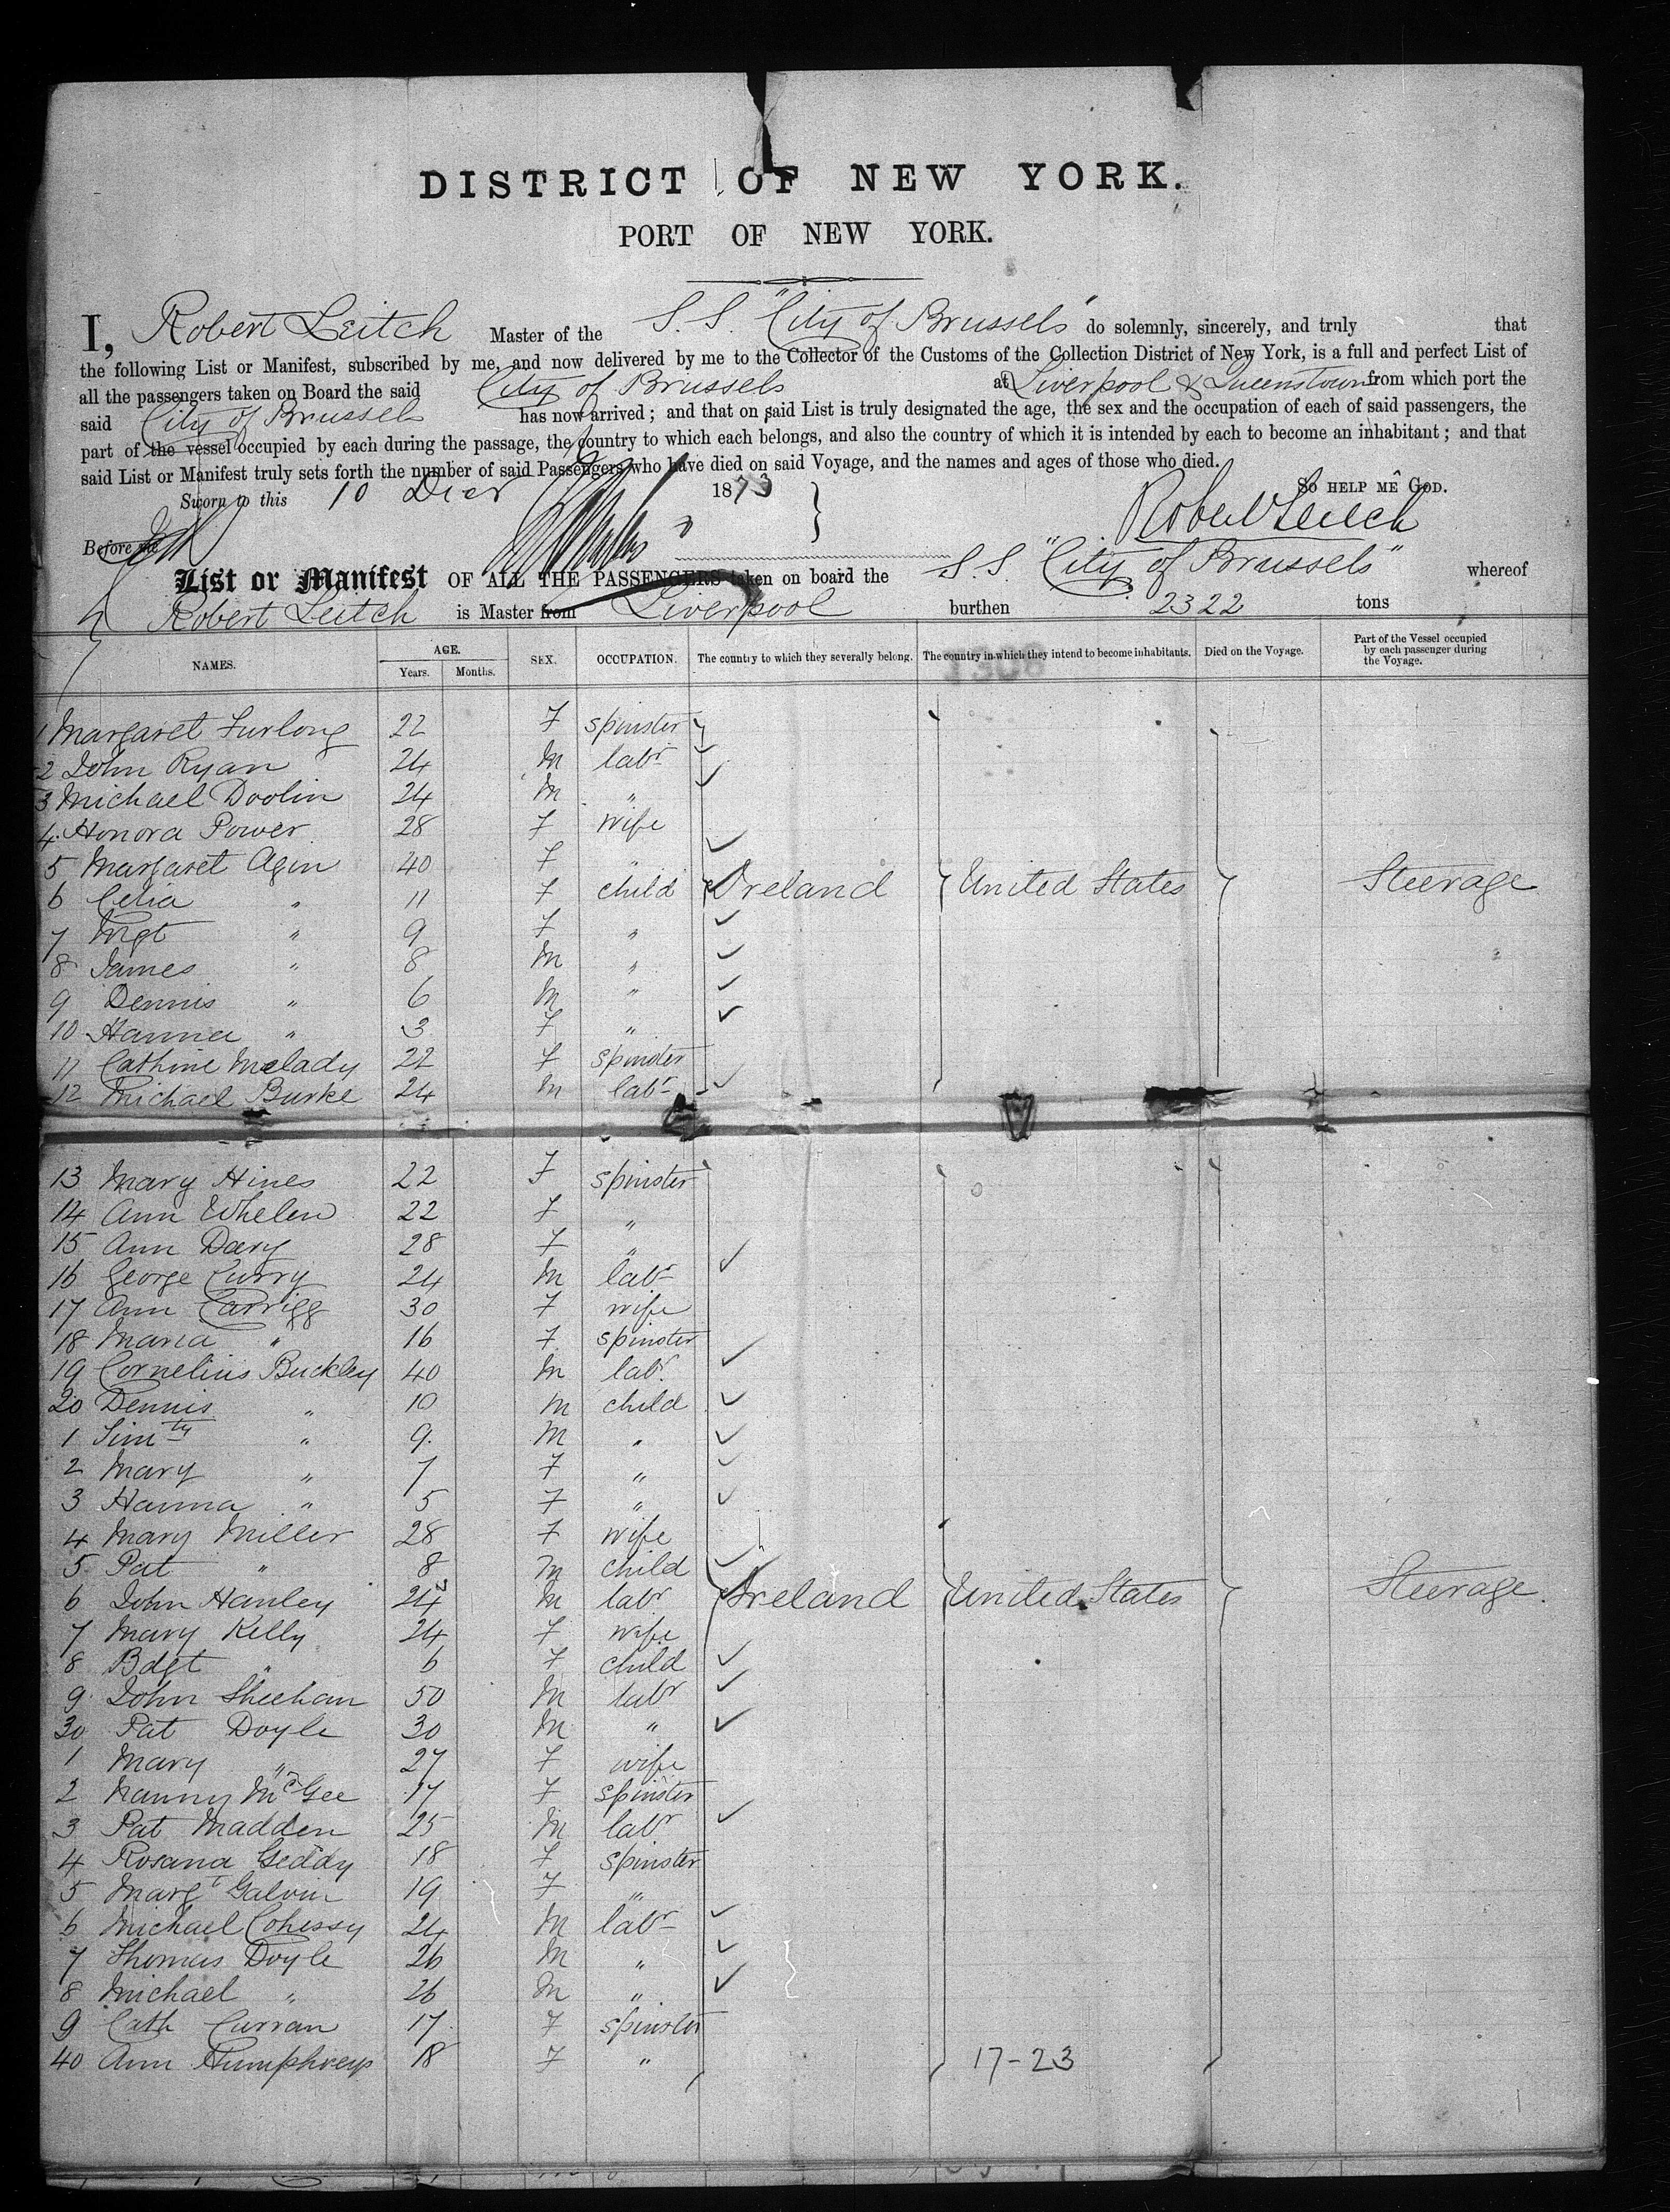 DISTRICT OF NEW YORK.
PORT OF NEW YORK.
I, Robert Leitch Master of the S.S. "City of Brussels" do solemnly, sincerely, and truly that
the following List or Manifest, subscribed by me, and now delivered by me to the Collector of the Customs of the Collection District of New York, is a full and perfect List of
all the passengers taken on Board the said City of Brussels at Liverpool & Queenstown from which port the
said City of Brussels has now arrived; and that on said List is truly designated the age, the sex and the occupation of each of said passengers, the
part of the vessel occupied by each during the passage, the country to which each belongs, and also the country of which it is intended by each to become an inhabitant; and that
said List or Manifest truly sets forth the number of said Passengers who have died on said Voyage, and the names and ages of those who died.
So help me God.
Sworn to this 10 Decr 1873
Robert Leitch
Before me
List or Manifest OF ALL THE PASSENGERS taken on board the S.S. "City of Brussels" whereof
Robert Leitch is Master from Liverpool burthen 2322 tons
NAMES. AGE. Years. Months. SEX. OCCUPATION. The country to which they severally belong. The country in which they intend to become inhabitants. Died on the Voyage. Part of the Vessel occupied by each passenger during the Voyage.
1 Margaret Furlong 22 F spinster
2 John Ryan 24 M labr
3 Michael Doolin 24 M "
4 Honora Power 28 F wife
5 Margaret Agin 40 F "
6 Celia " 11 F child Ireland United States Steerage
7 Mgt " 9 F "
8 James " 8 M "
9 Dennis " 6 M "
10 Hanna " 3 F "
11 Cathine Melady 22 F spinster
12 Michael Burke 24 M labr
13 Mary Hines 22 F spinster
14 Ann Whelen 22 F "
15 Ann Davy 28 F "
16 George Curry 24 M labr
17 Ann Carrigg 30 F wife
18 Maria " 16 F spinster
19 Cornelius Buckley 40 M labr
20 Dennis " 10 M child
1 Timty " 9 M "
2 Mary " 7 F "
3 Hanna " 5 F "
4 Mary Miller 28 F wife
5 Pat " 8 M child
6 John Hanley 24 M labr Ireland United States Steerage
7 Mary Kelly 24 F wife
8 Bdgt " 6 F child
9 John Sheehan 50 M labr
30 Pat Doyle 30 M "
1 Mary " 27 F wife
2 Nanny McGee 17 F spinster
3 Pat Madden 25 M labr
4 Rosana Geddy 18 F spinster
5 Margt Galvin 19 F "
6 Michael Cohessy 24 M labr
7 Thomas Doyle 26 M "
8 Michael " 26 M "
9 Cath Curran 17 F spinster
40 Ann Humphreys 18 F "
17-23